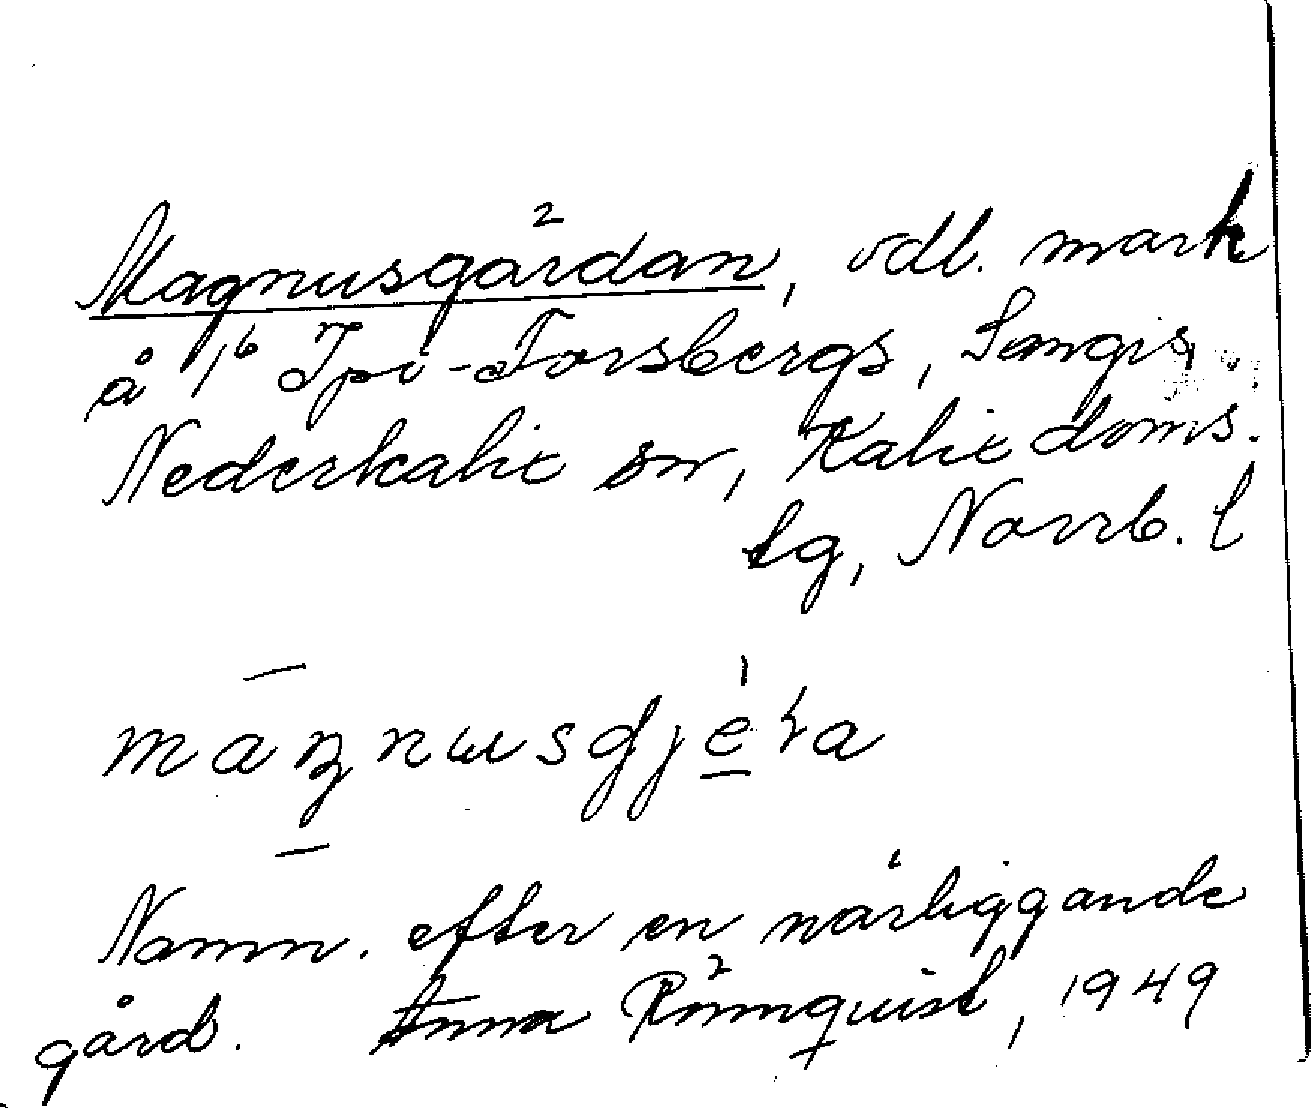 Magnusgårdan, odl. mark
å 1⁶ Ipi-Forsbergs, Sangis,
Nederkalix sn, Kalix doms.
lg, Norrb. l
maŋnusgjera
Namn. efter en närliggande
gård. Anna Rönnquist, 1949